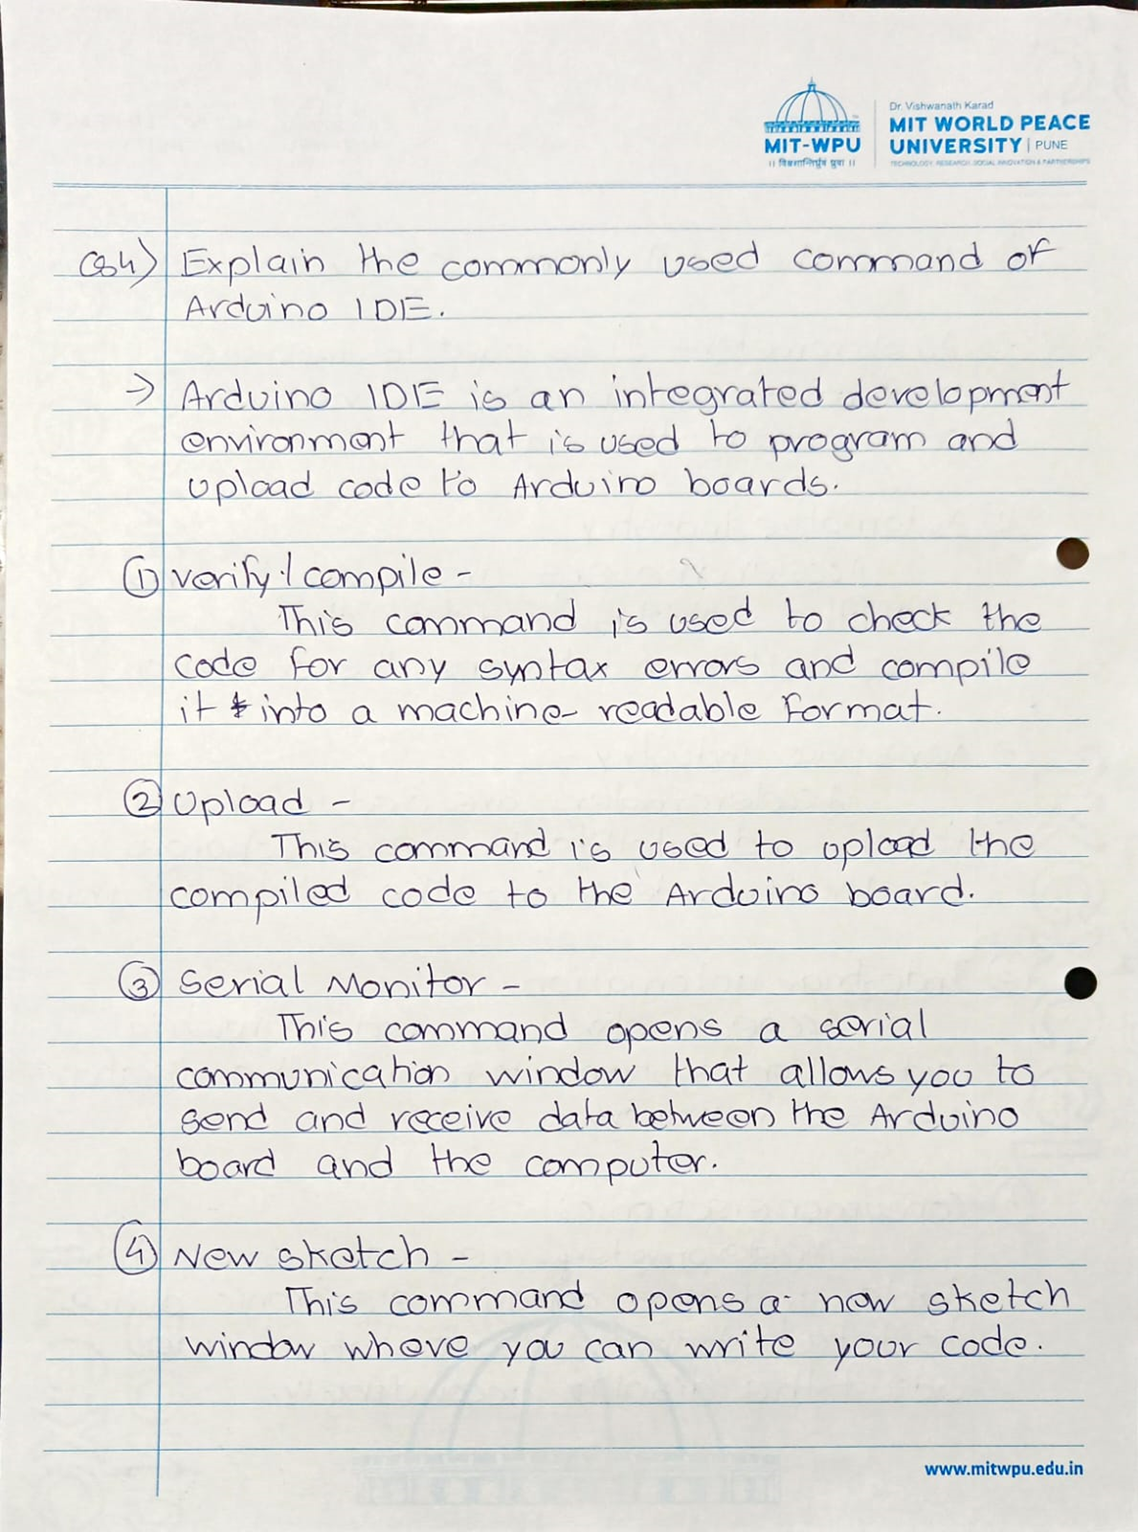 Dr. Vishwanath Karad
MIT WORLD PEACE
UNIVERSITY | PUNE
TECHNOLOGY, RESEARCH, SOCIAL INNOVATION & PARTNERSHIPS
MIT-WPU
Q4) Explain the commonly used command of
Arduino IDE.
→ Arduino IDE is an integrated development
environment that is used to program and
upload code to Arduino boards.
① verify / compile -
This command is used to check the
code for any syntax errors and compile
it into a machine-readable format.
② Upload -
This command is used to upload the
compiled code to the Arduino board.
③ Serial Monitor -
This command opens a serial
communication window that allows you to
send and receive data between the Arduino
board and the computer.
④ New sketch -
This command opens a new sketch
window where you can write your code.
www.mitwpu.edu.in